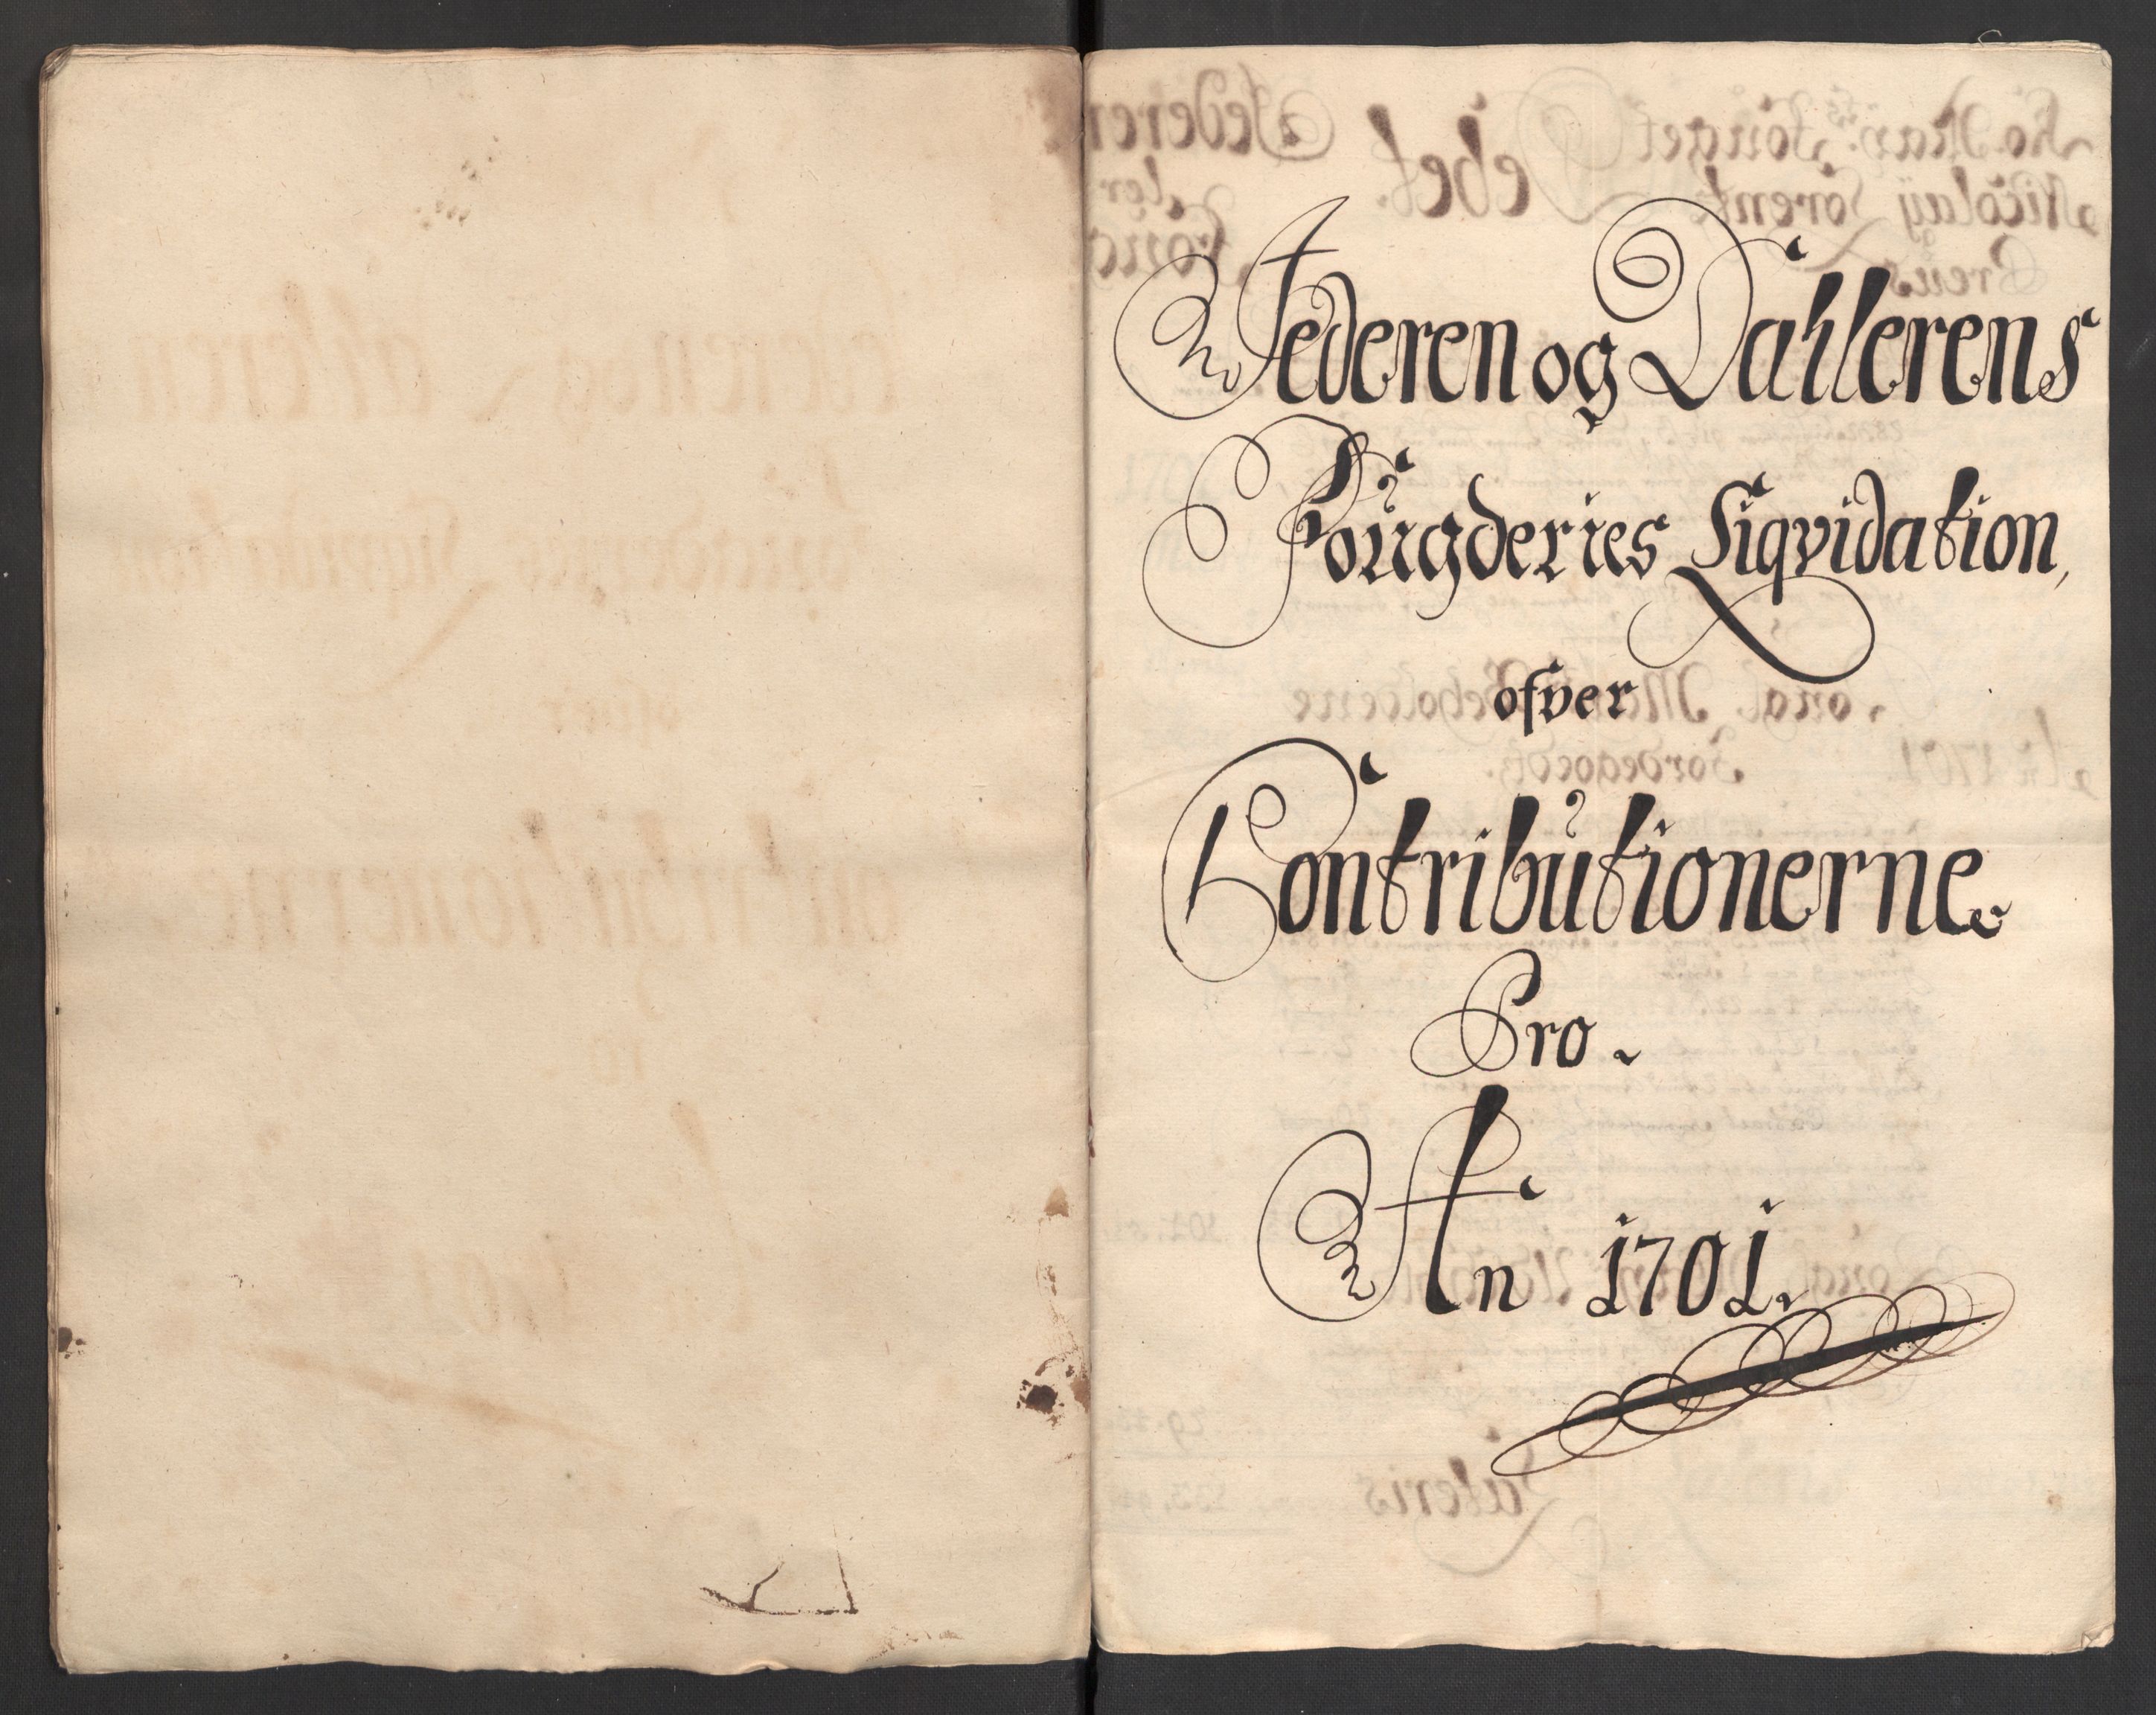 Jederen og Dahlerens
Fougderies Liqvidation,
ofver
Contributionerne
Pro
An 1701.